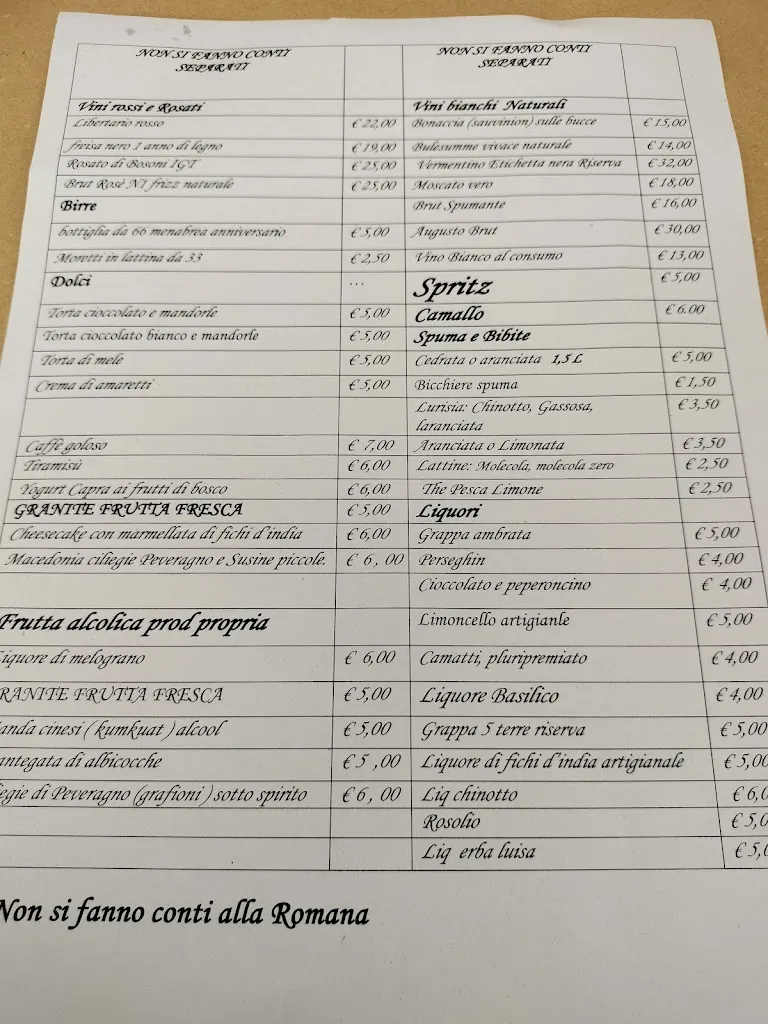 NON SI FANNO CONTI
SEPARATI
Vini rossi e Rosati
Libertario rosso € 22,00
freisa nero 1 anno di legno € 19,00
Rosato di Bosoni IGT € 25,00
Brut Rosè N1 frizz naturale € 25,00
Birre
bottiglia da 66 menabrea anniversario € 5,00
Moretti in lattina da 33 € 2,50
Dolci ...
Torta cioccolato e mandorle € 5,00
Torta cioccolato bianco e mandorle € 5,00
Torta di mele € 5,00
Crema di amaretti € 5,00
Caffè goloso € 7,00
Tiramisù € 6,00
Yogurt Capra ai frutti di bosco € 6,00
GRANITE FRUTTA FRESCA € 5,00
Cheesecake con marmellata di fichi d'india € 6,00
Macedonia ciliegie Peveragno e Susine piccole. € 6, 00
Frutta alcolica prod propria
iquore di melograno € 6,00
RANITE FRUTTA FRESCA € 5,00
anda cinesi ( kumkuat ) alcool € 5,00
antegata di albicocche € 5 ,00
egie di Peveragno (grafioni ) sotto spirito € 6, 00
NON SI FANNO CONTI
SEPARATI
Vini bianchi Naturali
Bonaccia (sauvinion) sulle bucce € 15,00
Bulesumme vivace naturale € 14,00
Vermentino Etichetta nera Riserva € 32,00
Moscato vero € 18,00
Brut Spumante € 16,00
Augusto Brut € 30,00
Vino Bianco al consumo € 13,00
Spritz € 5,00
Camallo € 6.00
Spuma e Bibite
Cedrata o aranciata 1,5 L € 5,00
Bicchiere spuma € 1,50
Lurisia: Chinotto, Gassosa, € 3,50
laranciata
Aranciata o Limonata € 3,50
Lattine: Molecola, molecola zero € 2,50
The Pesca Limone € 2,50
Liquori
Grappa ambrata € 5,00
Perseghin € 4,00
Cioccolato e peperoncino € 4,00
Limoncello artigianle € 5,00
Camatti, pluripremiato € 4,00
Liquore Basilico € 4,00
Grappa 5 terre riserva € 5,00
Liquore di fichi d'india artigianale € 5,00
Liq chinotto € 6,0
Rosolio € 5,0
Liq erba luisa € 5,0
Non si fanno conti alla Romana